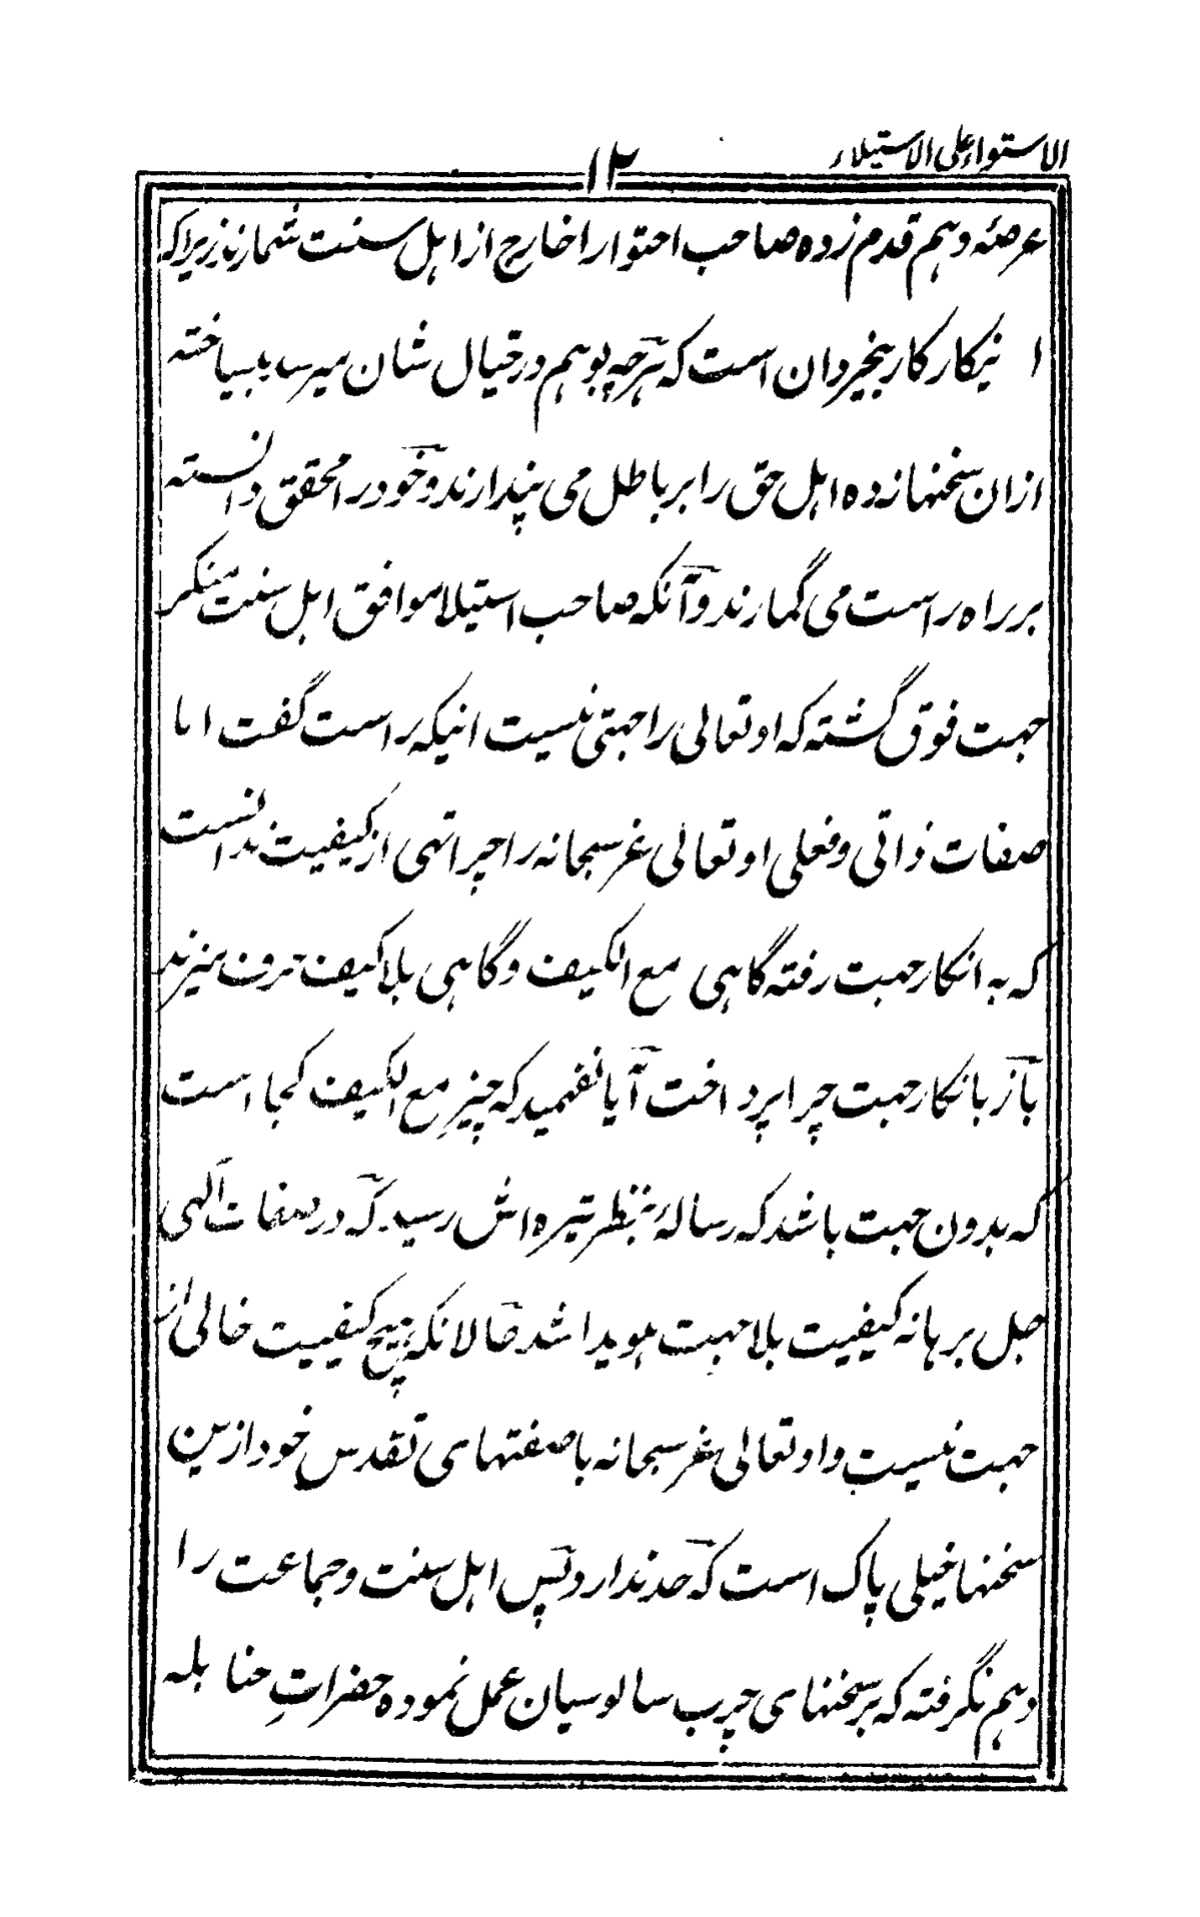 الاستواء علی الاستیلاء
۱۲
عرصهٔ وهم قدم زده صاحب احتوا را خارج از اهل سنت شمارند زیراکه
اینکار کار بیخردان است که هرچه بوهم در خیال شان میرسد بساخته
ازان سخنها زده اهل حق را بر باطل می پندارند و خود را محقق دانسته
بر راه راست می گمارند و آنکه صاحب استیلا موافق اهل سنت منکر
جهت فوق گشته که او تعالی را جهتی نیست اینکه راست گفت اما
صفات ذاتی و فعلی او تعالی عز سبحانه را چرا تهی از کیفیت ندانست
که به انکار جهت رفته گاهی مع الکیف و گاهی بلا کیف حرف میزند
باز بانکار جهت چرا پرداخت آیا نفهمید که چیز مع الکیف کجا است
که بدون جهت باشد که رسالهٔ بنظر تیره اش رسید که در صفات الهی
جل برهانه کیفیت بلا جهت هویدا شد حالانکه هیچ کیفیت خالی از
جهت نیست و او تعالی عز سبحانه با صفتهای تقدس خود ازین
سخنها خیلی پاک است که حد ندارد و پس اهل سنت و جماعت را
وهم نگرفته که بر سخنهای چرب سالوسیان عمل نموده حضراتِ حنابله